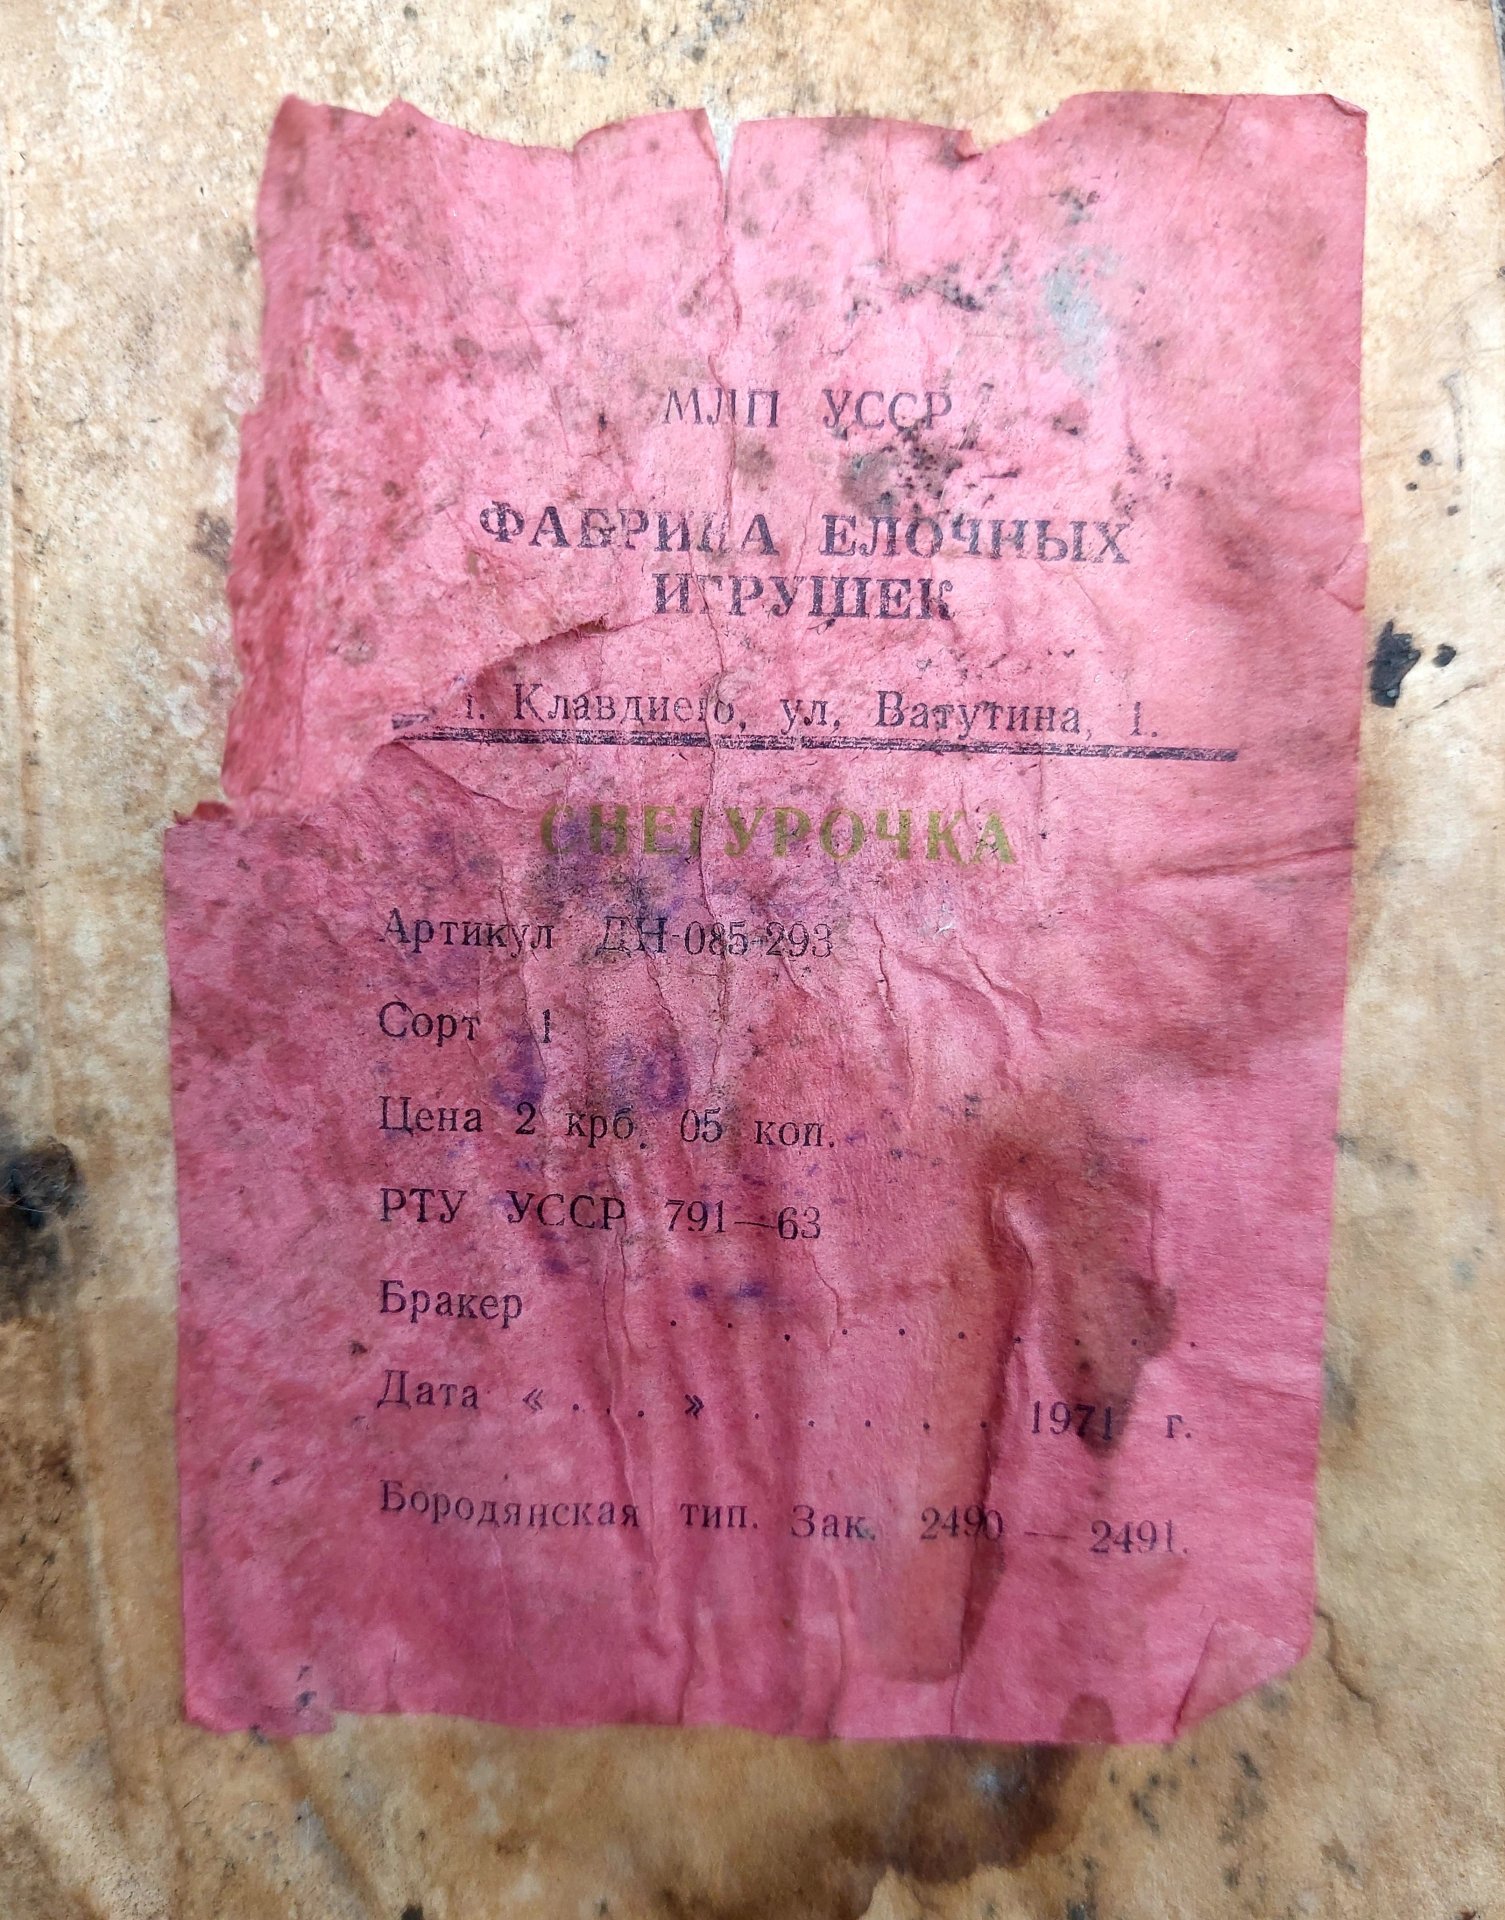 МЛП УССР
ФАБРИКА ЕЛОЧНЫХ
ИГРУШЕК
Клавдиево, ул. Ватутина, 1.
СНЕГУРОЧКА
Артикул ДН-085-293
Сорт 1
Цена 2 крб. 05 коп.
РТУ УССР 791—63
Бракер . . . . . . . . . .
Дата « . . . » . . . . . 1971 г.
Бородянская тип. Зак. 2490 — 2491.